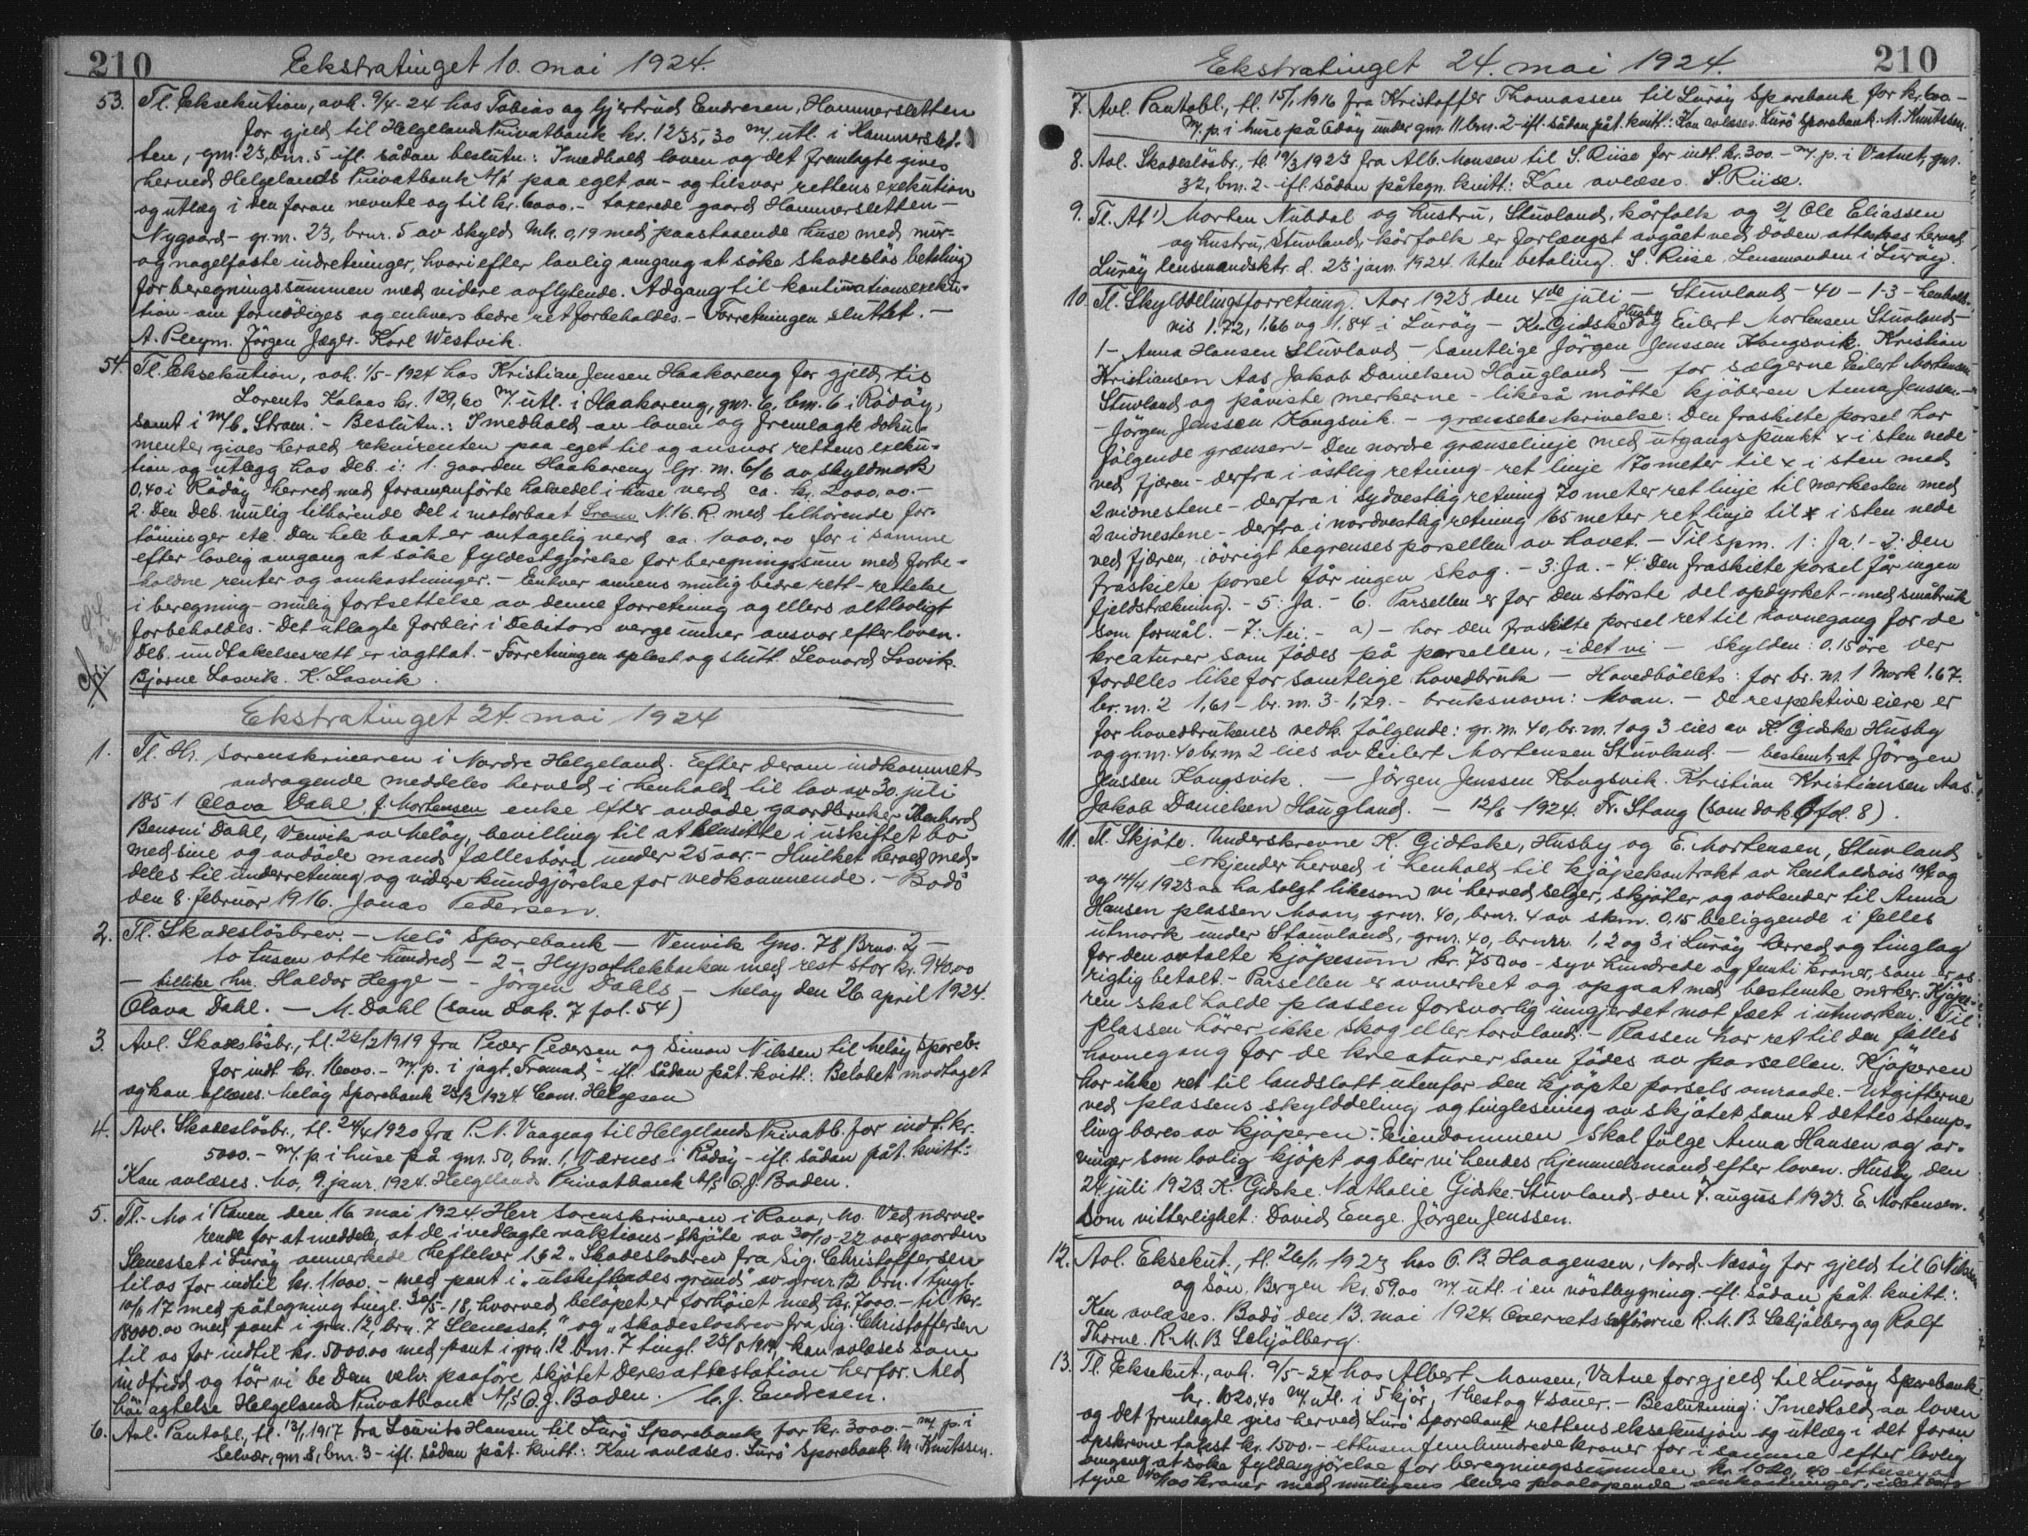 210
Ekstratinget 10. mai 1924.
53. Tl. Eksekution, avh. 9/4-24 hos Tobias og Gjertrud Endresen, Hammersletten
for gjeld til Helgelands Privatbank kr. 1235,30 m/ utl. i Hammerslet-
ten, gnr. 23, bnr. 5 ifl. sådan beslutn.: I medhold loven og det fremlagte gives
herved Helgelands Privatbank A/S paa eget an- og tilsvar rettens exekution
og utlæg i den foran nevnte og til kr. 6000.- taxerede gaard Hammersletten-
Nygaard- gr.nr. 23, brnr. 5 av skyld Mk. 0,19 med paastaaende huse med mur-
og nagelfaste indretninger, hvori efter lovlig omgang at söke skadeslös betaling
for beregningssummen med videre avflytende. Adgang til kontinuationsexeku-
tion om fornödiges og enhvers bedre ret forbeholdes. - Forretningen sluttet. -
A. Pleym. Jörgen Jæger. Karl Westvik.
54. Tl. Eksekution, avh. 1/5-1924 hos Kristian Jensen Haakoreng for gjeld til
Lorents Kalaas kr. 129,60 m/ utl. i Haakoreng, gnr. 6, bnr. 6 i Rödöy,
samt i m/b. "Stram". - Beslutn.: I medhold av loven og fremlagte doku-
menter gives herved rekvirenten paa eget til og ansvar rettens exeku-
tion og utlegg hos Deb. i: 1. gaarden Haakoreng Gr. nr. 6/6 av skyldmark
0,40 i Rödöy herred med forananförte halvedel i huse verd ca. kr. 2000,00.-
2. Den Deb. mulig tilhörende del i motorbaat Stram N. 16. R. med tilhörende for-
töininger etc. Den hele baat er antagelig verd ca. 1000,00 for i samme
efter lovlig omgang at söke fyldestgjörelse for beregningssum med forbe-
holdne renter og omkostninger. - Enhver annens mulig bedre rett - rettelse
i beregning - mulig fortsettelse av denne forretning og ellers alt lovligt
forbeholdes. - Det utlagte forblir i Debitors verge under ansvar efter loven.
Deb. undtakelsesrett er iagttat. - Forretningen oplest og slutt. Leonard Losvik.
Bjarne Losvik. K. Losvik.
Ekstratinget 24. mai 1924
1. Tl. Hr. sorenskriveren i Nordre Helgeland. Efter derom indkommet
andragende meddeles herved i henhold til lov av 30. juli
1851 Olava Dahl f. Mortensen enke efter avdöde gaardbruker
Benoni Dahl, Venvik av Melöy, bevilling til at hensitte i uskiftet bo
med sine og avdöde mands fællesbörn under 25 aar. - Hvilket herved med-
deles til underretning og videre kundgjörelse for vedkommende. - Bodö
den 8. februar 1916. Jonas Pedersen.
2. Tl. Skadeslösbrev. - Melö Sparebank - Venvik Gno. 78 Brno. 2 -
to tusen otte hundred - 2 - Hypothekbanken med rest stor kr. 940.00
- tillike hr. Haldor Hegge - - Jörgen Dahls - Melöy den 26 april 1924.
Olava Dahl. - M. Dahl (som dok. 7 fol. 54)
3. Avl. Skadeslösbr., tl. 22/2 1919 fra Peder Pedersen og Simon Nilssen til Melöy Spareb.
for indt. kr. 16000.- m/ p. i jagt "Fremad" - ifl. sådan påt. kvitt: Belöbet modtaget
og kan aflæses. Melöy Sparebank 23/2 1924 Corn. Helgesen
4. Avl. Skadeslösbr., tl. 24/4 1920 fra P. N. Vaagaag til Helgelands Privatb. for indt. kr.
5000.- m/ p. i huse på gnr. 50, bnr. 1, Værnes i Rödöy - ifl. sådan påt. kvitt:
Kan avlæses. Mo, 9. janr. 1924. Helgelands Privatbank A/S O. J. Boden.
5. Tl. - Mo i Ranen den 16 mai 1924. Herr Sorenskriveren i Rana, Mo. Ved nærvæ-
rende for at meddele, at de i vedlagte auktions-skjöte av 30/10-22 over gaarden
Slenesset i Luröy anmerkede heftelser 1 & 2 "Skadeslosbrev fra Sig. Christoffersen
til os for indtil kr. 11000.- med pant i "utskiftendes grund" av grnr. 12 brn. 1 tingl.
10/1 17 med påtegning tingl. 30/5-18, hvorved belöpet er forhöiet med kr. 7000.- til kr.
18000.00 med pant i grn. 12, brn. 7 Slenesset," og "skadeslosbrev fra Sig. Christoffersen
til os for indtil kr. 5000.00 med pant i grn. 12 brn. 7 tingl. 23/8 1919, kan avlæses som
indfridd og tör vi be Dem velv. paaföre skjötet Deres attestation herfor. Med
höi agtelse Helgelands Privatbank A/S O. J. Boden. / C. J. Endresen.
6. Avl. Pantobl., tl. 13/1 1917 fra Laurits Hansen til Lurö Sparebank for kr. 3000.- m/ p. i
Selvær, gnr. 8, bnr. 3 - ifl. sådan påt. kvitt: Kan avlæses. Lurö Sparebank M. Knutssen.
Ekstratinget 24. mai 1924.
210
7. Avl. Pantobl., tl. 15/1 1916 fra Kristoffer Thomassen til Luröy Sparebank for kr. 600.-
m/ p. i huse på Gdöy under gnr. 11, bnr. 2 - ifl. sådan påt. kvitt: Kan avlæses. Lurö Sparebank. M. Knutssen.
8. Avl. Skadeslösbr., tl. 19/3 1923 fra Alb. Monsen til S. Riise for indt. kr. 300.- m/ p. i Vatnet, gnr.
32, bnr. 2 - ifl. sådan påtegn. kvitt: Kan avlæses. S. Riise.
9. Tl. At 1) Morten Nubdal og hustru, Stuvland, kårfolk og 2) Ole Eliassen
og hustru, Stuvland, kårfolk er forlængst avgået ved döden attesteres herved.
Luröy lensmandsktr. d. 23 jan. 1924. Uten betaling. S. Riise. Lensmanden i Luröy.
10. Tl. Skylddelingsforretning. Aar 1923 den 4de juli - Stuvland - 40 - 1-3 - henholds-
vis 1.72, 1.66 og 1.84 i Luröy - K. Gidske Husby og Eilert Mortensen Stuvland -
1 - Anna Hansen Stuvland - samtlige Jörgen Jenssen Kongsvik. Kristian
Kristiansen Aas, Jakob Danielsen Haugland - for sælgerne Eilert Mortensen
Stuvland og påviste merkerne - likeså mötte kjöberen Anna Jenssen -
- Jörgen Jenssen Kongsvik - grænsebeskrivelse: Den fraskilte parsel har
fölgende grænser - Den nordre grænselinje med utgangspunkt x i sten nede
ved fjæren - derfra i östlig retning - ret linje 170 meter til x i sten med
2 vidnestene - derfra i sydvestlig retning 70 meter ret linje til merkesten med
2 vidnestene - derfra i nordvestlig retning 165 meter ret linje til x i sten nede
ved fjæren, iövrigt begrenses parsellen av havet. - Til spm. 1: Ja! - 2: Den
fraskilte parsel får ingen skog. - 3: Ja. - 4: Den fraskilte parsel får ingen
fjeldstrekning. - 5: Ja. - 6. Parsellen er for den störste del opdyrket - med småbruk
som formål. - 7: Nei. - a) - har den fraskilte parsel ret til havnegang for de
kreaturer som födes på parsellen, i det vi - skylden: 0.15 öre der
fordeles like for samtlige hovedbruk - Hovedböllets: for br. nr. 1 Mark 1.67.
br. nr. 2 1,61 - br. nr. 3 - 1,79. - bruksnavn: Moan. - De respektive eiere er
for hovedbrukenes vedk. fölgende: gr. nr. 40, br. nr. 1 og 3 eies av K. Gidske Husby
og gr. nr. 40 br. nr. 2 eies av Eilert Mortensen Stuvland. - bestemt, at Jörgen
Jenssen Kongsvik. - Jörgen Jenssen Kongsvik. Kristian Kristiansen Aas.
Jakob Danielsen Haugland. - 12/3 1924. Fr. Stang (som dok 6 fol. 8).
11. Tl. Skjöte. Underskrevne K. Gidtske, Husby og E. Mortensen, Stuvland
erkjender herved i henhold til kjöpekontrakt av henholdsvis 10/4 og
og 14/4 1923 aa ha solgt likesom vi herved selger, skjöter og avhender til Anna
Hansen plassen Moan, grnr. 40, brnr. 4 av skm. 0,15 beliggende i felles
utmark under Stuvland, grnr. 40, brnr. 1, 2 og 3 i Luröy herred og tinglag
for den avtalte kjöpesum kr. 750.00 - syv hundrede og femti kroner, som er os
rigtig betalt. - Parsellen er avmerket og opgaat med bestemte merker. Kjöpe-
ren skal holde plassen forsvarlig inngjerdet mot fæet i utmarken. Til
plassen hörer ikke skog eller torvland. - Plassen har ret til den felles
havnegang for de kreaturer som födes av parsellen. Kjöperen
har ikke ret til landslott utenfor den kjöpte parsels omraade. - Utgifterne
ved plassens skylddeling og tinglesning av skjötet samt dettes stemp-
ling bæres av kjöperen. - Eiendommen skal fölge Anna Hansen og ar-
vinger som lovlig kjöpt og blir vi hendes hjemmelsmand efter loven. Husby den
24 juli 1923. K. Gidske. Nathalie Gidske. Stuvland den 7. august 1923. E. Mortensen.
Som vitterlighet: David Enge. Jörgen Jenssen.
12. Avl. Eksekut., tl. 26/1 1923 hos O. B. Haagensen, Nord-Næsöy for gjeld til C. Nilssen
og Sön, Bergen kr. 59.00 m/ utl. i en nöstbygning - ifl. sådan påt. kvitt:
Kan avlæses. Bodö den 13. mai 1924. Overretssakförerne R. M. B. Schjölberg og Rolf
Thorne. R. M. B. Schjölberg.
13. Tl. Eksekut., avh. 9/5-24 hos Albert Monsen, Vatne for gjeld til Luröy Sparebank
kr. 1020,40 m/ utl. i 5 kjör, 1 hest og 4 sauer. - Beslutning: I medhold av loven
og det fremlagte gies herved Lurö Sparebank rettens eksekusjon og utlæg i det foran
opskrevne takst kr. 1500.- ettusen femhundrede kroner for i samme efter lovlig
omgang at söke fyldesgjörelse for beregningssummen kr. 1020,40 ettusen og
tyve kroner med muligens senere paaløpende omkostninger,